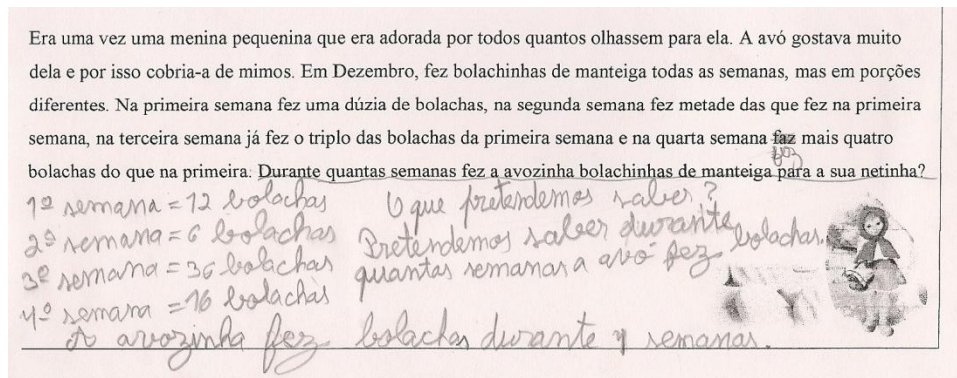 Era uma vez uma menina pequenina que era adorada por todos quantos olhassem para ela. A avó gostava muito
dela e por isso cobria-a de mimos. Em Dezembro, fez bolachinhas de manteiga todas as semanas, mas em porções
diferentes. Na primeira semana fez uma dúzia de bolachas, na segunda semana fez metade das que fez na primeira
semana, na terceira semana já fez o triplo das bolachas da primeira semana e na quarta semana faz mais quatro
fez
bolachas do que na primeira. Durante quantas semanas fez a avozinha bolachinhas de manteiga para a sua netinha?
1ª semana = 12 bolachas
2ª semana = 6 bolachas
3ª semana = 36 bolachas
4ª semana = 16 bolachas
O que pretendemos saber?
Pretendemos saber durante
quantas semanas a avó fez bolachas.
A avozinha fez bolachas durante 4 semanas.